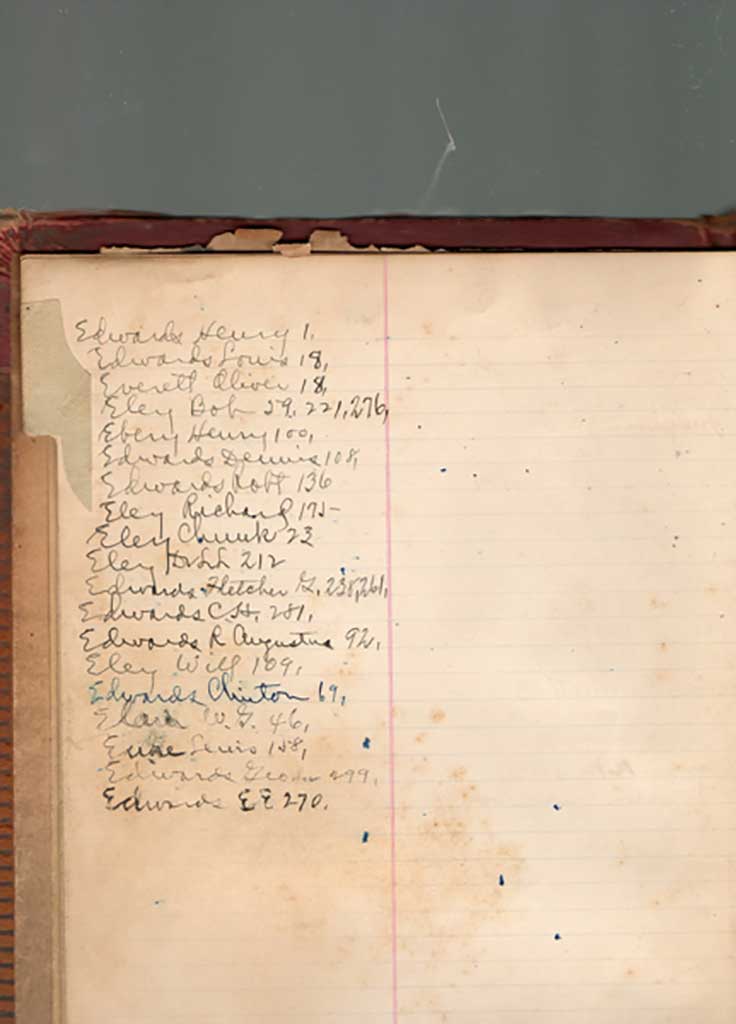 Edwards Henry 1.
Edwards Louis 18,
Everett Oliver 18,
Eley Bob 59, 221, 276,
Ebery Henry 100,
Edwards Dennis 108,
Edwards Robt 136
Eley Richard 175-
Eley Chunk 23
Eley 212
Edwards Fletcher G. 238, 261,
Edwards C.H. 281,
Edwards R Augustus 92,
Eley Will 109,
Edwards Clinton 69,
W.G. 46,
Lewis 158,
Edwards 299,
Edwards EE 270.